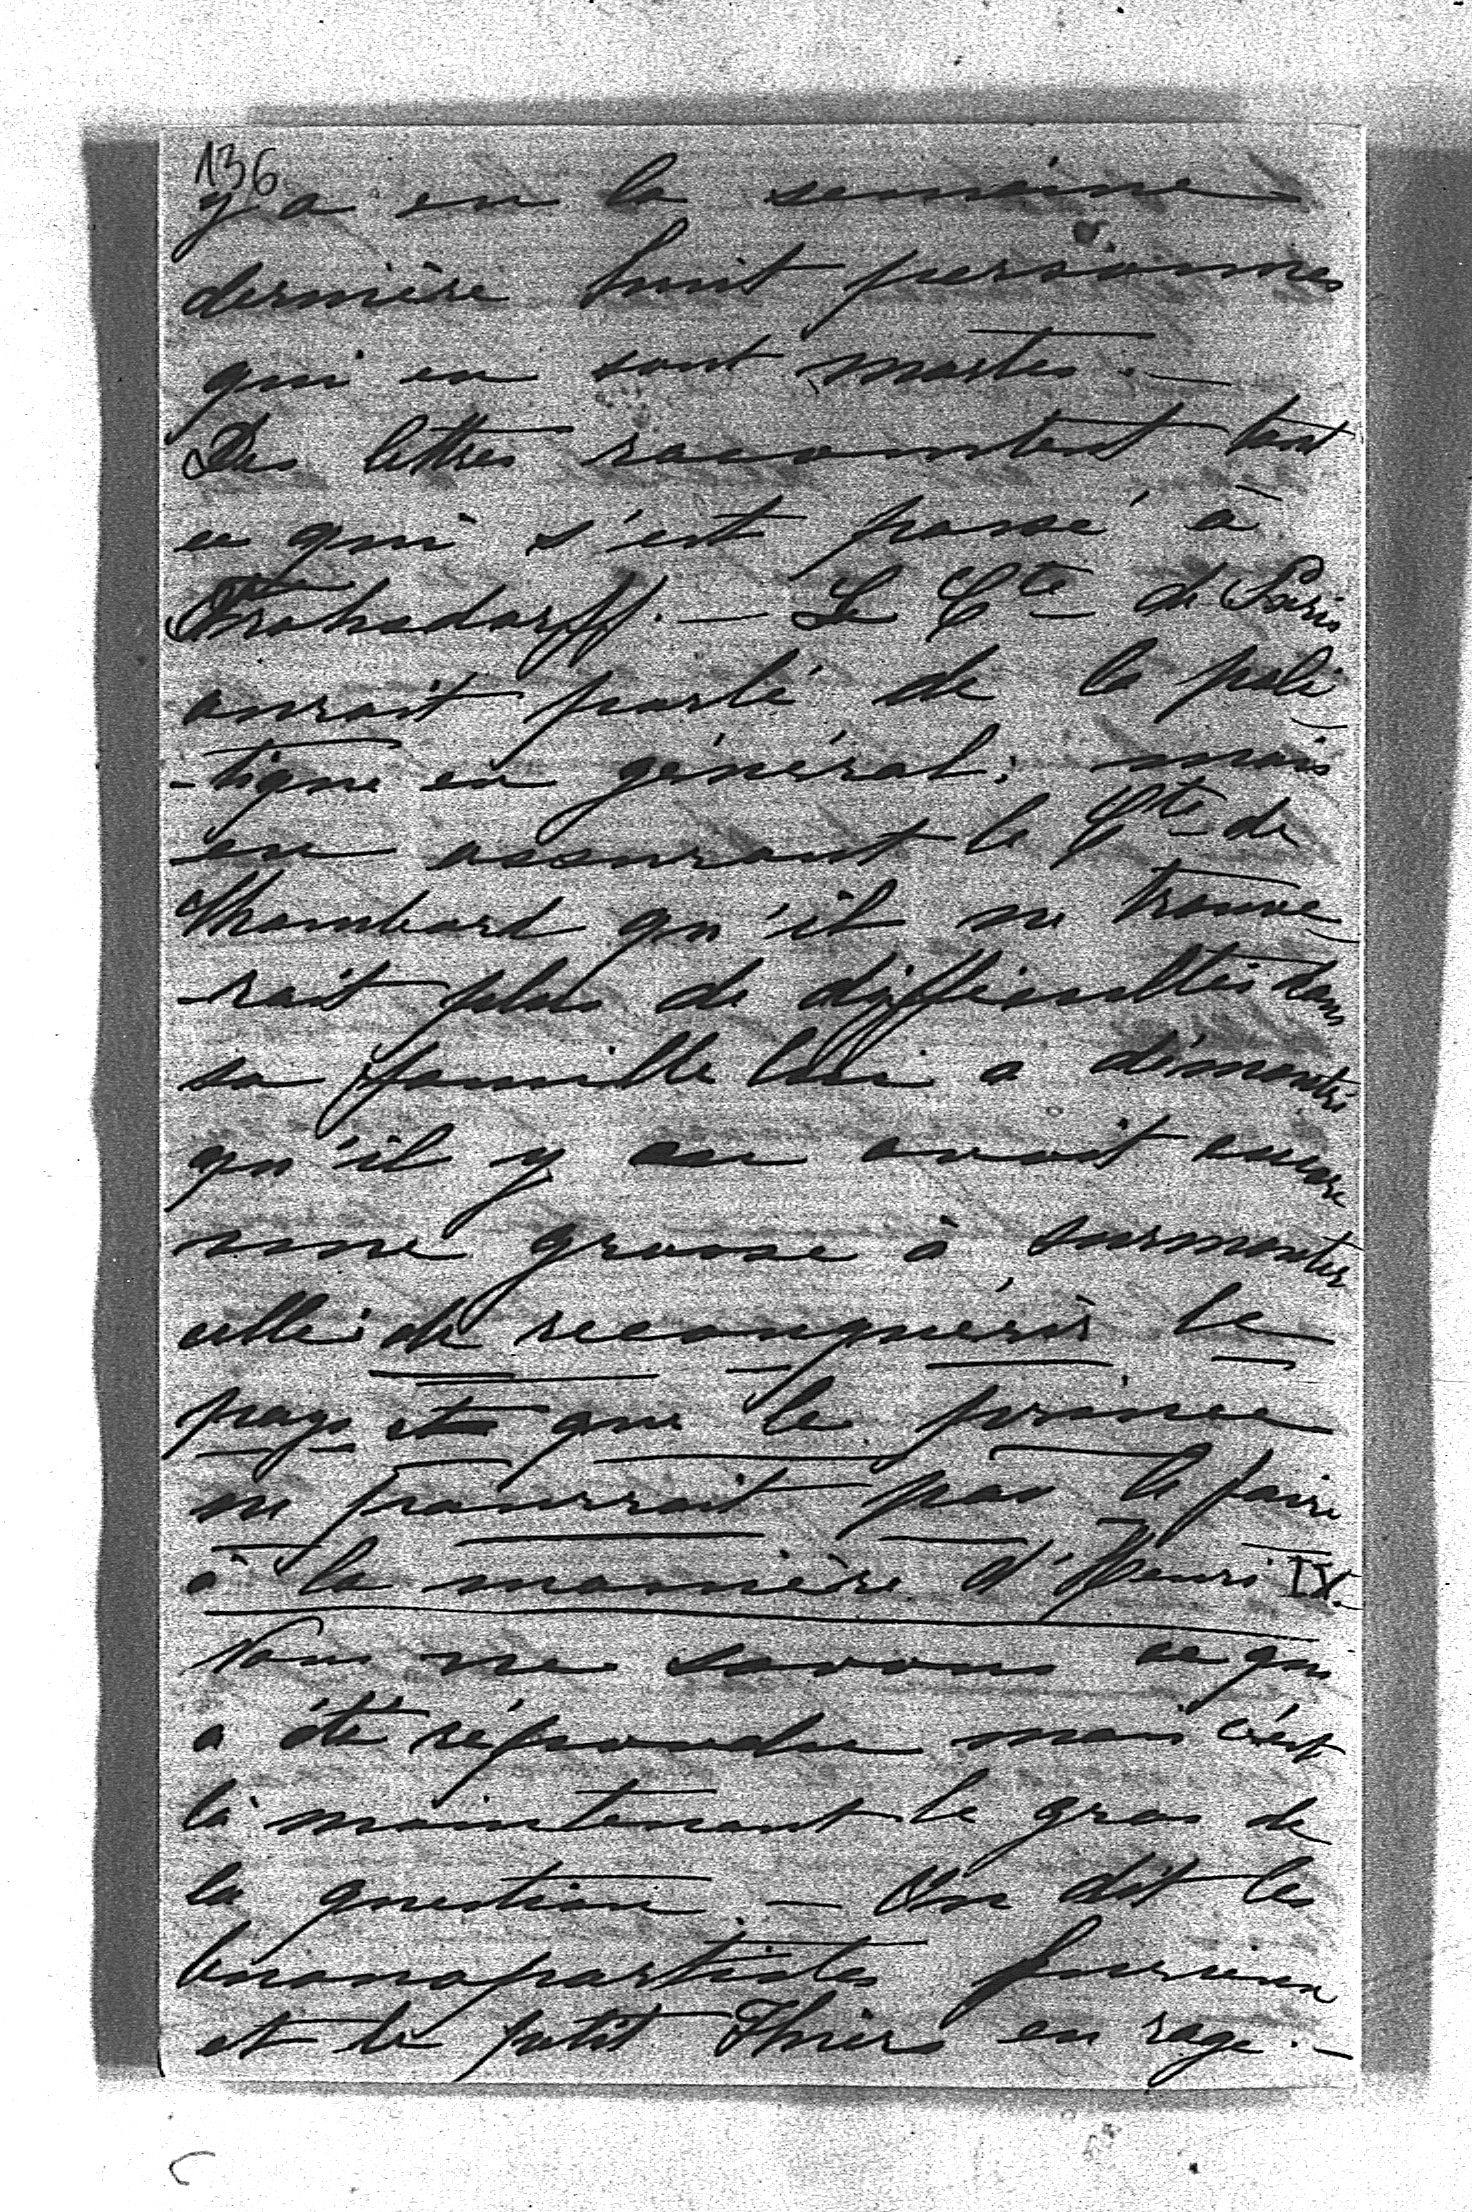 136
y a eu la semaine
dernière huit personnes
qui en sont mortes. —
Des lettres racontent tout
ce qui s'est passé à
Frohsdorff. — Le Cte de Paris
aurait parlé de la poli
-tique en général; mais
en assurant le Cte de
Chambord qu'il ne trouve
-rait plus de difficultés dans
sa famille lui a démontré
qu'il y en avait encore
une grosse à surmonter
celle de reconquérir le
pays et que le prince
ne pourrait pas le faire
à la manière d'Henri IV.
Nous ne savons ce qui
a été répondu mais c'est
là maintenant le gros de
la question. — On dit les
buonapartistes furieux
et le petit Thiers en rage. —